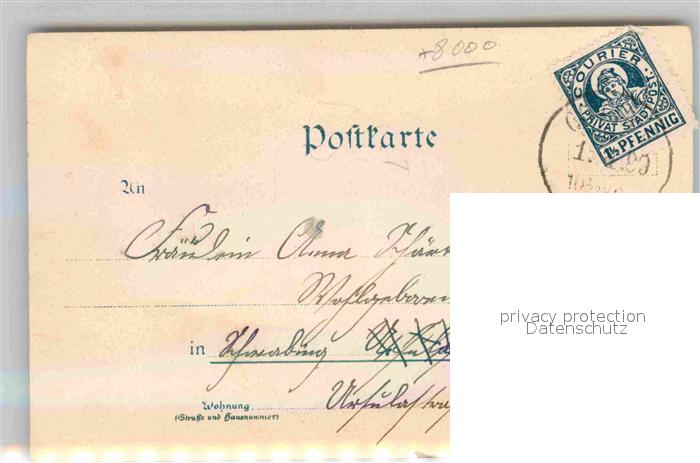 +8000
COURIER
PRIVAT STADTPOST
1½ PFENNIG
Postkarte
An
Fräulein Anna
Wohlgeboren
privacy protection
Datenschutz
in Schwabing
Wohnung
(Straße und Hausnummer)
Ursulastra